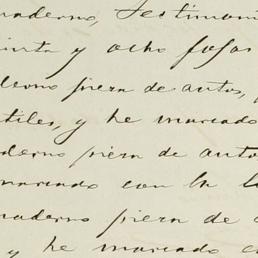 uaderno, Testimon
inta y ocho fojas
derno pieza de autos,
tiles, y he marcado
aderno pieza de auto
marcado con la l
uaderno pieza de
y he marcado c